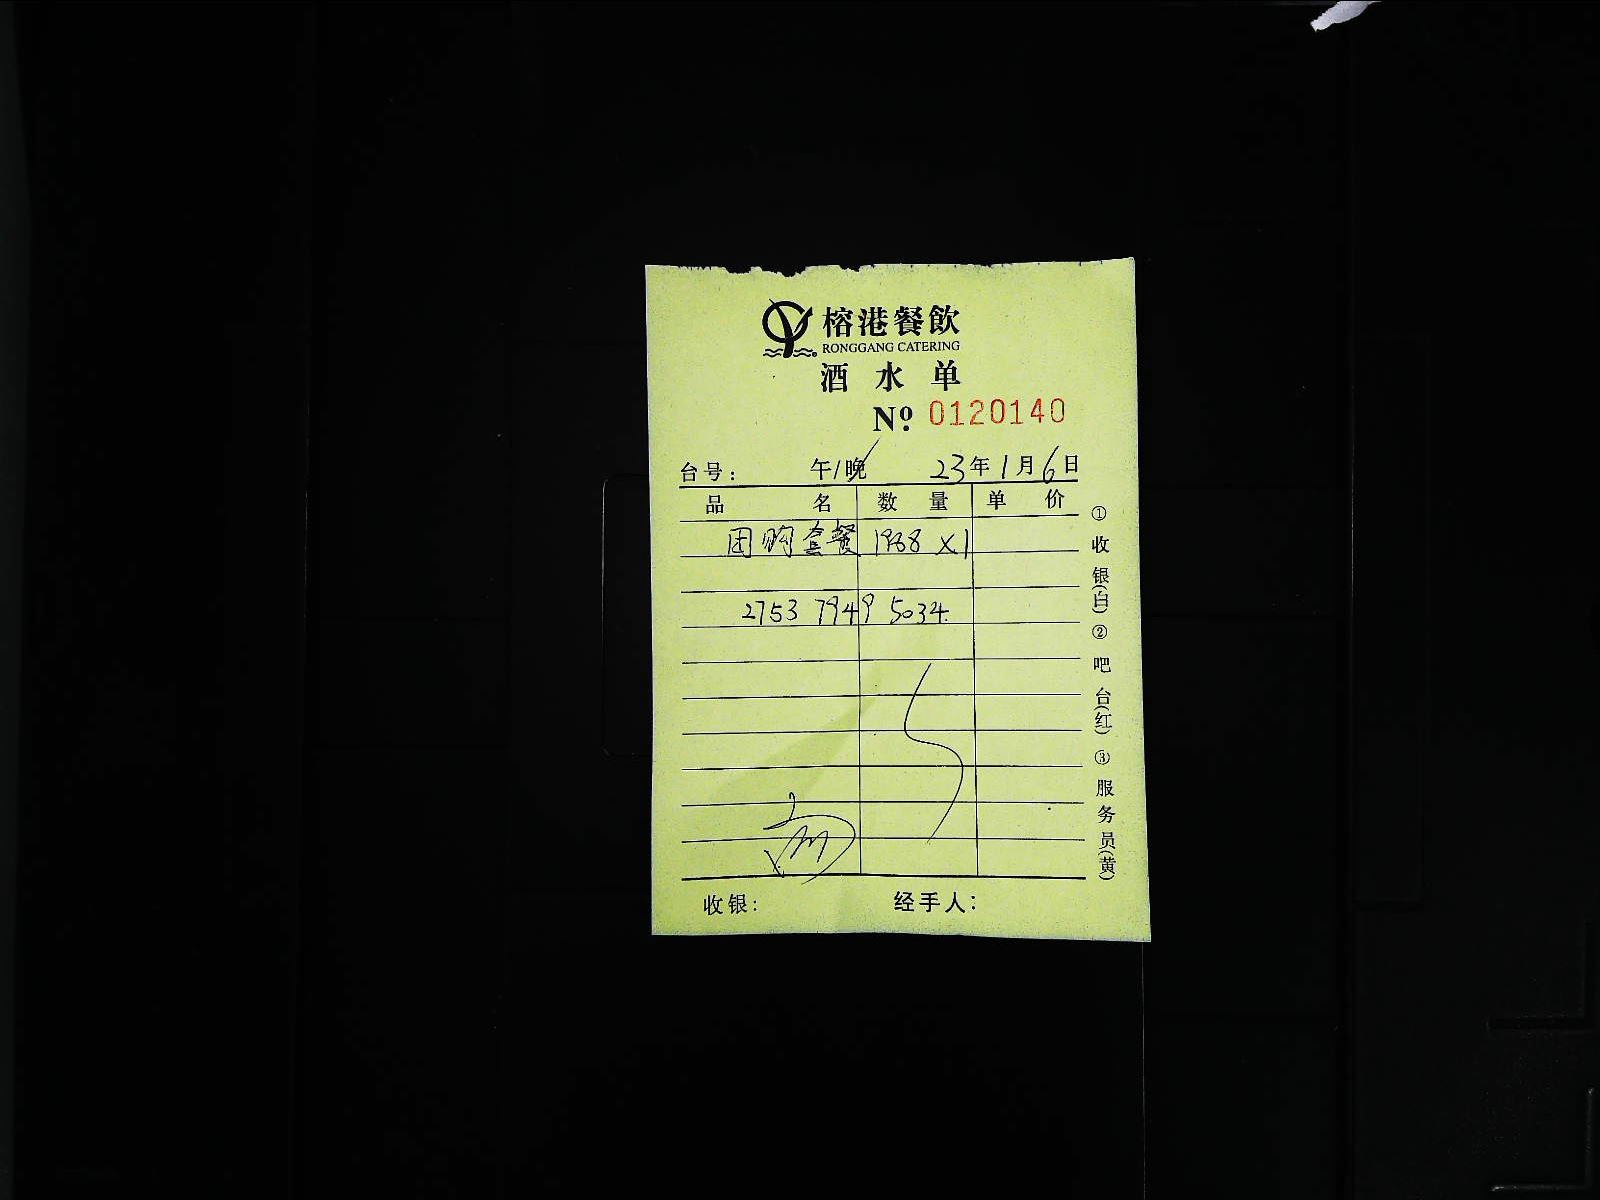 榕港餐飲
RONGGANG CATERING
酒水单
Nº 0120140
台号： 午/晚 23年1月6日
品名 数量 单价
团购套餐 1968 X1
2753 7949 5034
收银： 经手人：
①收银(白) ②吧台(红) ③服务员(黄)